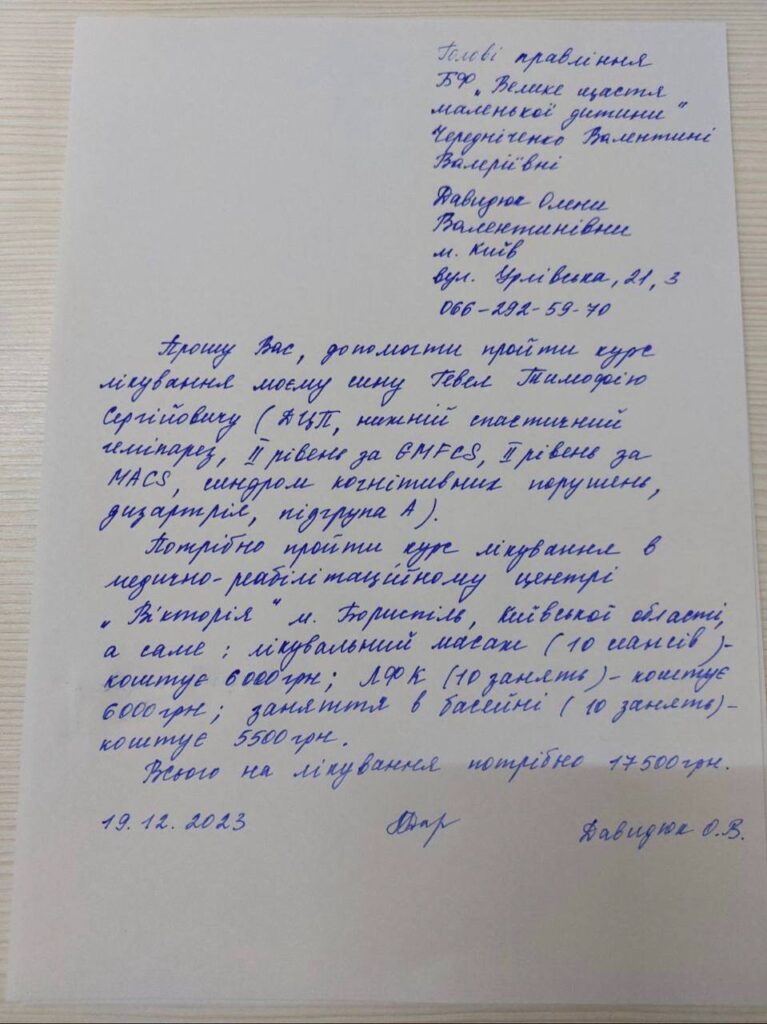 Голові правління
БФ „Велике щастя
маленької дитини"
Чередніченко Валентині
Валеріївні
Давидюк Олени
Валентинівни
м. Київ
вул. Урлівська, 21, 3
066-292-59-70
Прошу Вас, допомогти пройти курс
лікування моєму сину Гевел Тимофію
Сергійовичу (ДЦП, нижній спастичний
геміпарез, II рівень за GMFCS, II рівень за
MACS, синдром когнітивних порушень,
дизартрія, підгрупа А).
Потрібно пройти курс лікування в
медично-реабілітаційному центрі
„Вікторія" м. Бориспіль, Київської області,
а саме: лікувальний масаж (10 сеансів)-
коштує 6000грн; ЛФК (10 занять)- коштує
6000грн; заняття в басейні (10 занять)-
коштує 5500грн.
Всього на лікування потрібно 17500грн.
19.12.2023 Давидюк О.В.